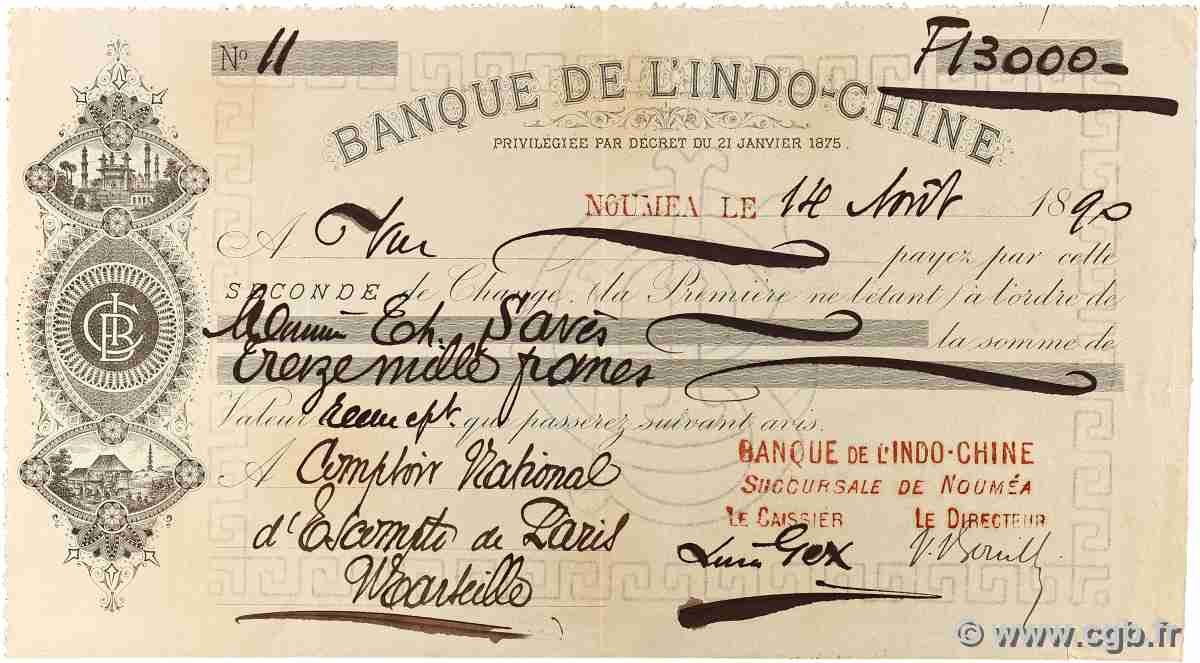 No 11
F 13000-
BANQUE DE L'INDO-CHINE
PRIVILÉGIÉE PAR DÉCRET DU 21 JANVIER 1875.
NOUMEA LE 14 Août 1890
A Vue payez par cette
SECONDE de Change, (la Première ne l'étant) à l'ordre de
Ed. Savès la somme de
Treize mille francs
Valeur que passerez suivant avis.
A Comptoir National
d'Escompte de Paris
Marseille
BANQUE DE L'INDO-CHINE
SUCCURSALE DE NOUMÉA
LE CAISSIER LE DIRECTEUR
Gex
© www.cgb.fr